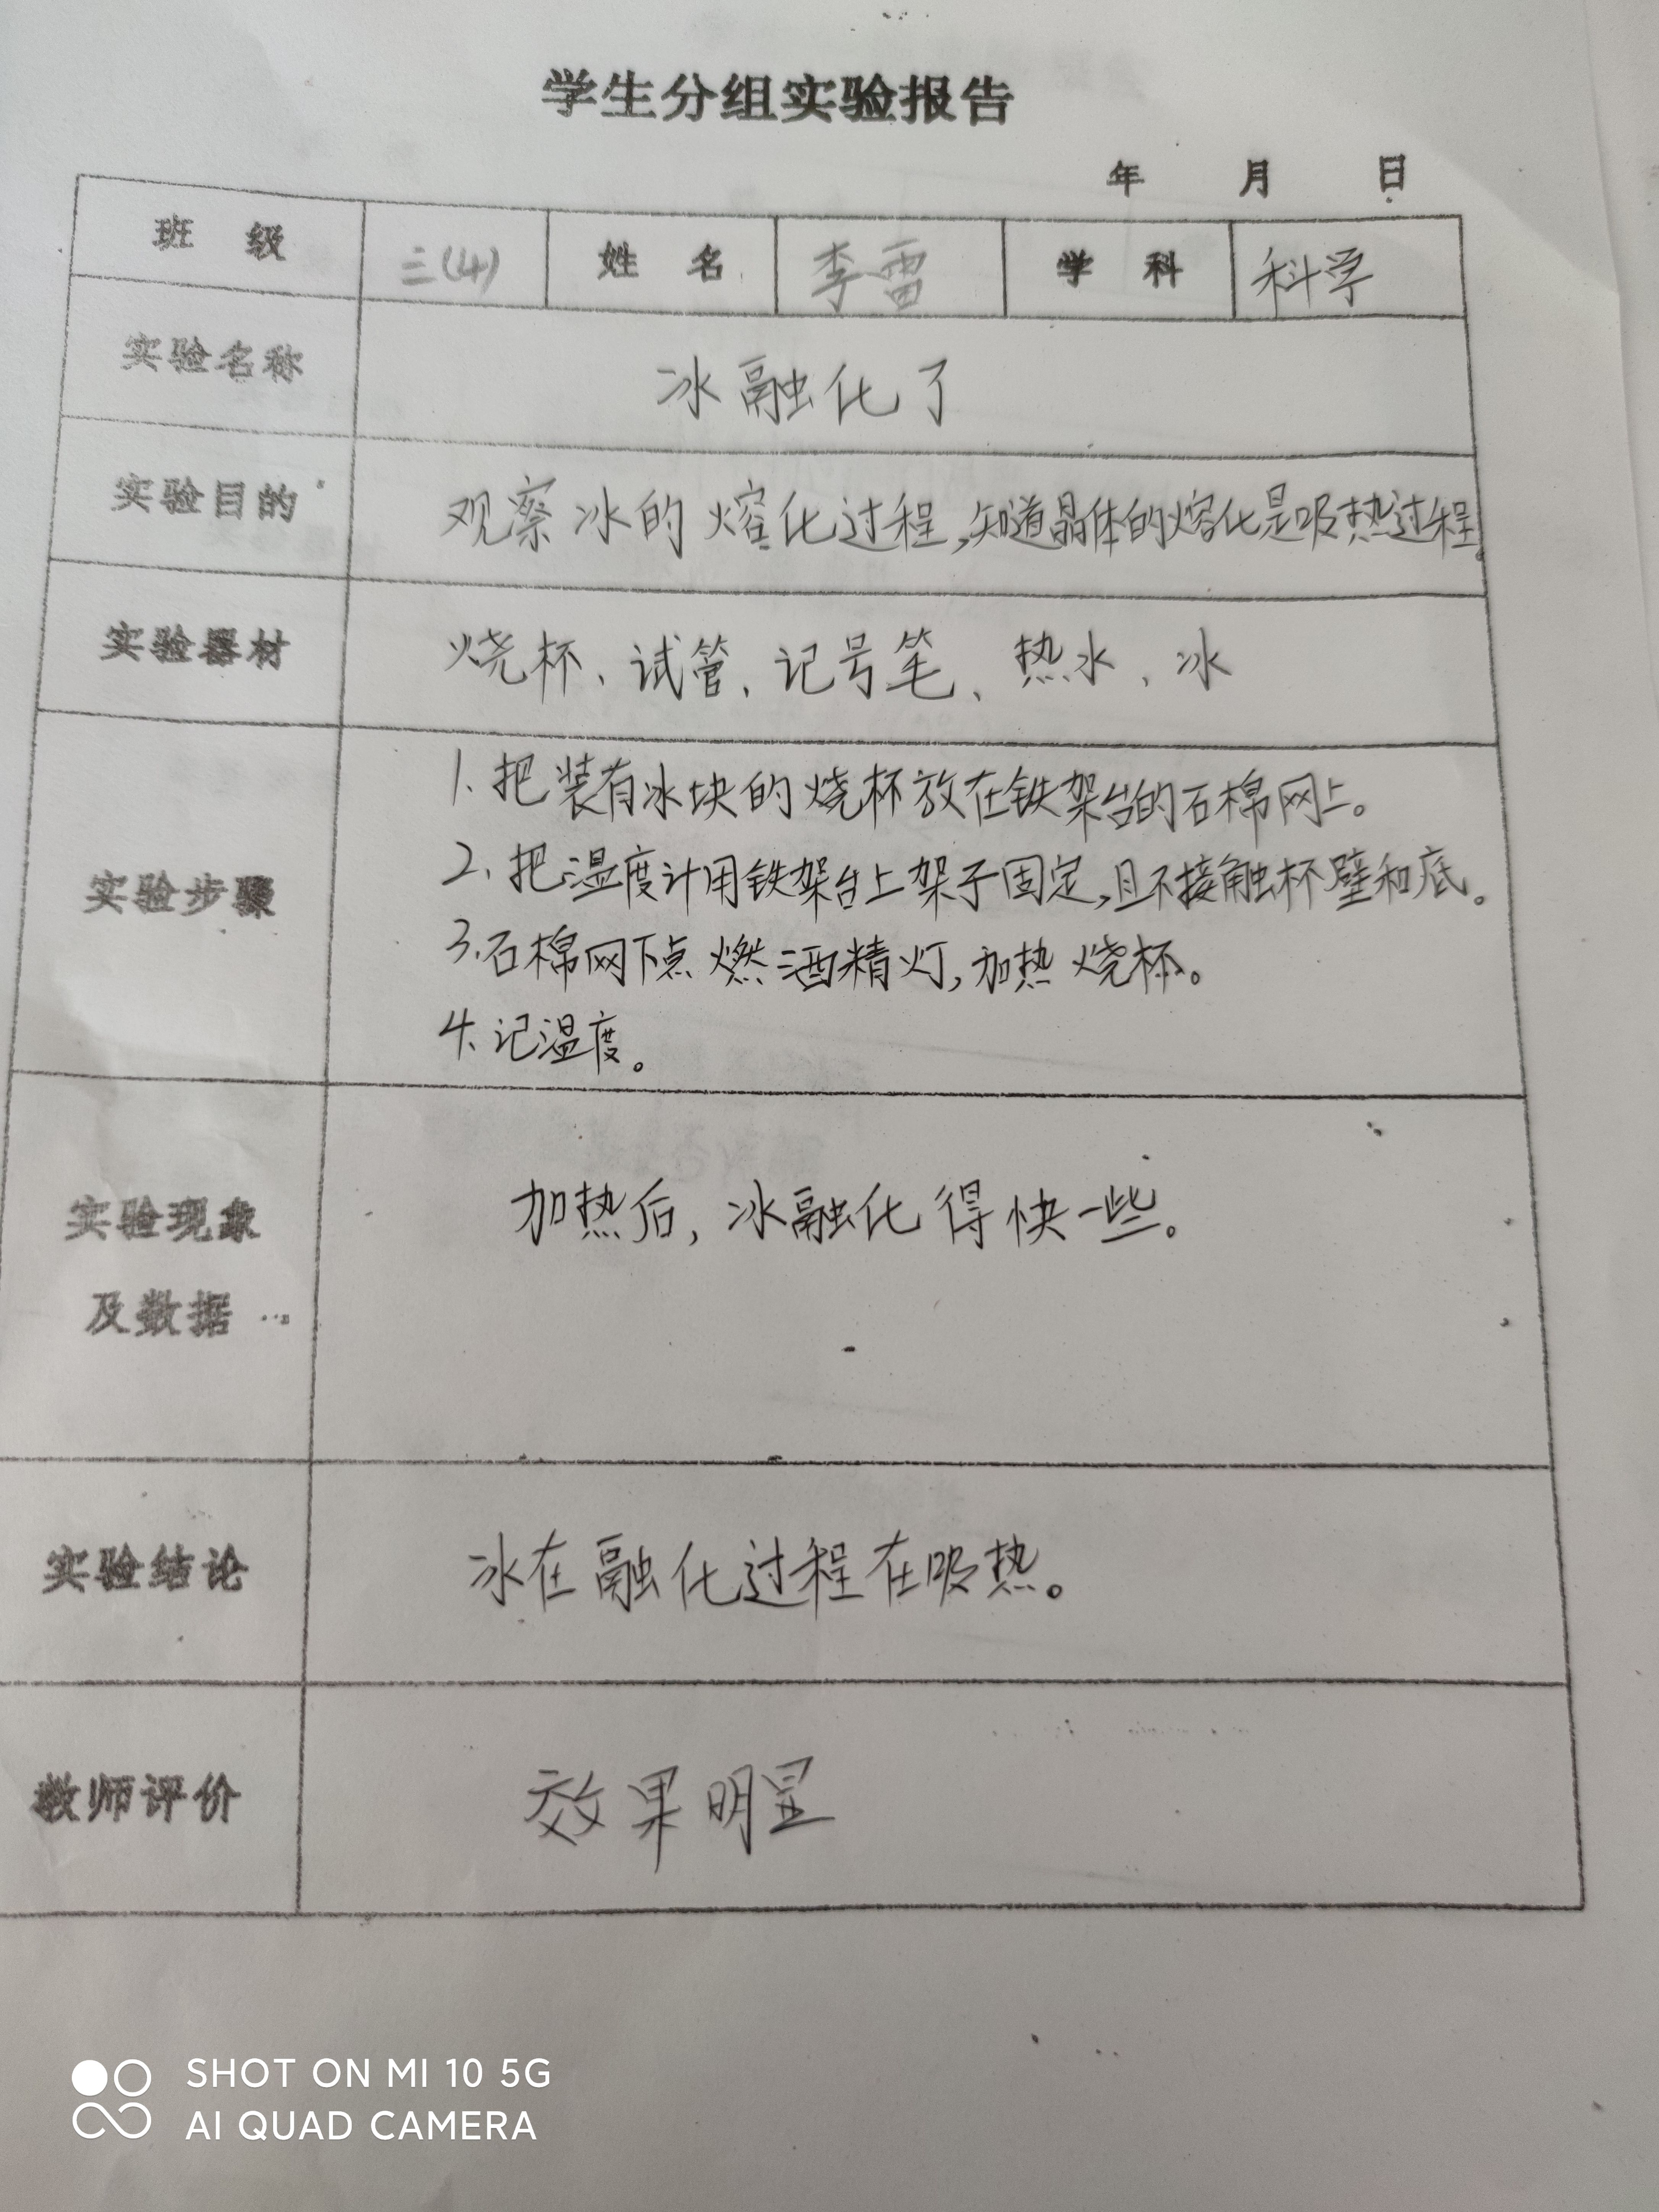 学生分组实验报告
年 月 日
班 级 三(4) 姓 名 李雷 学 科 科学
实验名称 冰融化了
实验目的 观察冰的熔化过程,知道晶体的熔化是吸热过程。
实验器材 烧杯、试管、记号笔、热水、冰
实验步骤
1.把装有冰块的烧杯放在铁架台的石棉网上。
2.把温度计用铁架台上架子固定,且不接触杯壁和底。
3.石棉网下点燃酒精灯,加热烧杯。
4.记温度。
实验现象
及数据
加热后,冰融化得快一些。
实验结论 冰在融化过程在吸热。
教师评价 效果明显
SHOT ON MI 10 5G
AI QUAD CAMERA